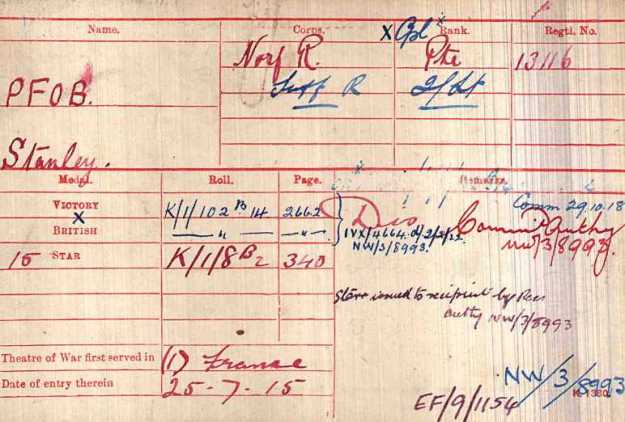 Name. Corps. Rank. Regtl. No.
X Cpl x
Norf R. Pte 13116
PFOB. Suff R 2/Lt
Stanley.
Medal. Roll. Page. Remarks.
Comm 29.10.18
VICTORY K/1/102 B 14 2662
X
BRITISH — " — — " —
IVX/4664 d/2/3/22.
NW/3/8993.
NW/3/8993
15 STAR K/1/8 B2 340
Star issued to recipient by
authy NW/3/8993
Theatre of War first served in (1) France
Date of entry therein 25-7-15
NW/3/8993
K. 1380.
EF/9/1154